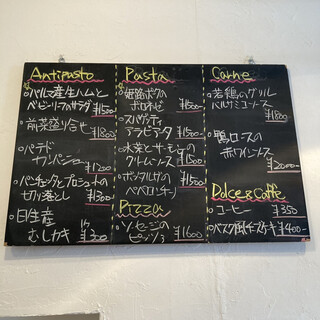 Antipasto
パルマ産生ハムと
ベビーリーフのサラダ ¥1500
前菜盛り合せ
¥1800
パテド
カンパーニュ
¥1200
パンチェッタとプロシュートの
切り落とし ¥1300
日生産
むしカキ 1ケ ¥300
Pasta
姫路ポークの
ボロネーゼ ¥1600
スパゲティ
アラビアータ ¥1500
水菜とサーモンの
クリームソース ¥1500
ペペロンチーノ ¥1500
Pizza
ソーセージの
ピッツァ ¥1600
Carne
若鶏のグリル
バルサミコソース
¥1800
鴨ロースの
赤ワインソース
¥2000
Dolce & Caffè
コーヒー ¥350
バスク風チーズケーキ ¥400